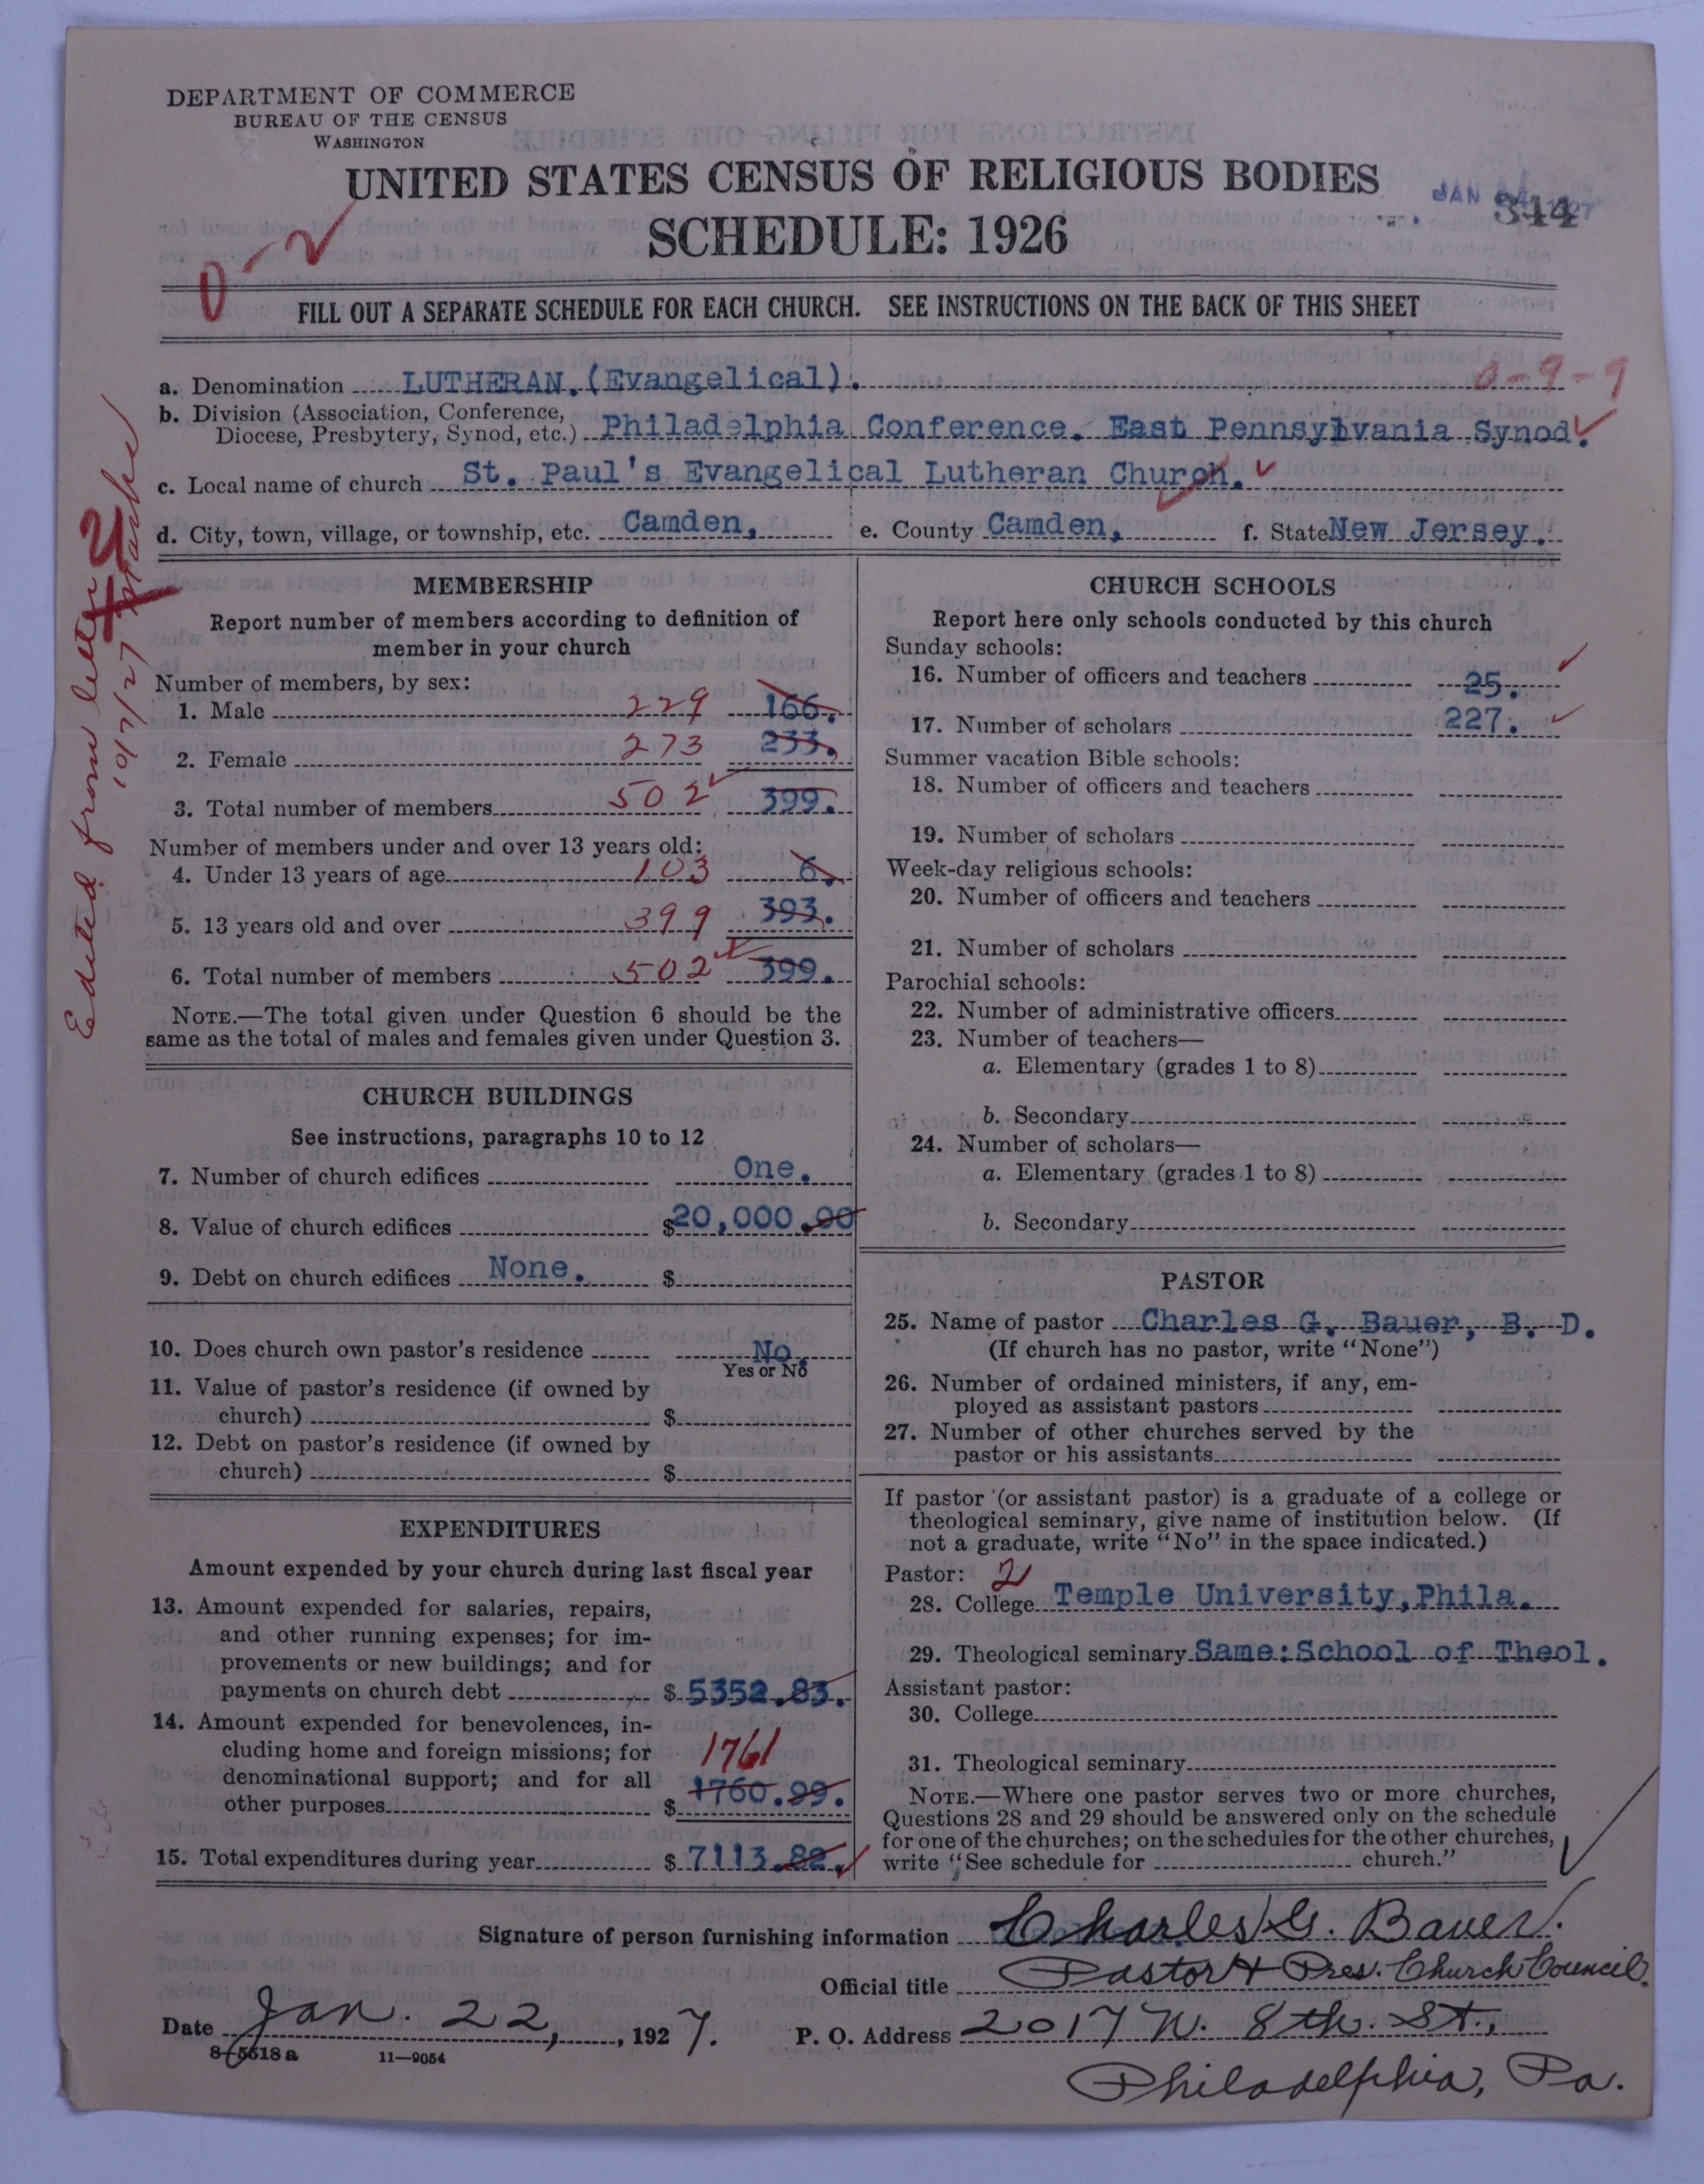 DEPARTMENT OF COMMERCE
BUREAU OF THE CENSUS
WASHINGTON
UNITED STATES CENSUS OF RELIGIOUS BODIES
SCHEDULE: 1926
JAN 24 1927
344
0-2
FILL OUT A SEPARATE SCHEDULE FOR EACH CHURCH. SEE INSTRUCTIONS ON THE BACK OF THIS SHEET
a. Denomination LUTHERAN. (Evangelical). 0-9-9
b. Division (Association, Conference,
Diocese, Presbytery, Synod, etc.) Philadelphia Conference. East Pennsylvania Synod.
c. Local name of church St. Paul's Evangelical Lutheran Church.
d. City, town, village, or township, etc. Camden, e. County Camden, f. State New Jersey.
Edited from letter
10/7/27
MEMBERSHIP
Report number of members according to definition of
member in your church
Number of members, by sex:
1. Male 229 166.
2. Female 273 233.
3. Total number of members 502 399.
Number of members under and over 13 years old:
4. Under 13 years of age 103 6.
5. 13 years old and over 399 393.
6. Total number of members 502 399.
NOTE.—The total given under Question 6 should be the
same as the total of males and females given under Question 3.
CHURCH BUILDINGS
See instructions, paragraphs 10 to 12
7. Number of church edifices One.
8. Value of church edifices $20,000.00
9. Debt on church edifices None. $
10. Does church own pastor's residence No.
Yes or No
11. Value of pastor's residence (if owned by
church) $
12. Debt on pastor's residence (if owned by
church) $
EXPENDITURES
Amount expended by your church during last fiscal year
13. Amount expended for salaries, repairs,
and other running expenses; for im-
provements or new buildings; and for
payments on church debt $ 5352.83.
14. Amount expended for benevolences, in-
cluding home and foreign missions; for 1761
denominational support; and for all
other purposes $ 1760.99.
15. Total expenditures during year $ 7113.82.
CHURCH SCHOOLS
Report here only schools conducted by this church
Sunday schools:
16. Number of officers and teachers 25.
17. Number of scholars 227.
Summer vacation Bible schools:
18. Number of officers and teachers
19. Number of scholars
Week-day religious schools:
20. Number of officers and teachers
21. Number of scholars
Parochial schools:
22. Number of administrative officers
23. Number of teachers—
a. Elementary (grades 1 to 8)
b. Secondary
24. Number of scholars—
a. Elementary (grades 1 to 8)
b. Secondary
PASTOR
25. Name of pastor Charles G. Bauer, B. D.
(If church has no pastor, write "None")
26. Number of ordained ministers, if any, em-
ployed as assistant pastors
27. Number of other churches served by the
pastor or his assistants
If pastor (or assistant pastor) is a graduate of a college or
theological seminary, give name of institution below. (If
not a graduate, write "No" in the space indicated.)
Pastor: 2
28. College Temple University, Phila.
29. Theological seminary Same: School of Theol.
Assistant pastor:
30. College
31. Theological seminary
NOTE.—Where one pastor serves two or more churches,
Questions 28 and 29 should be answered only on the schedule
for one of the churches; on the schedules for the other churches,
write "See schedule for church."
Signature of person furnishing information Charles G. Bauer.
Official title Pastor & Pres. Church Council.
Date Jan. 22, 1927. P. O. Address 2017 N. 8th. St.,
8-5518 a 11—9054
Philadelphia, Pa.